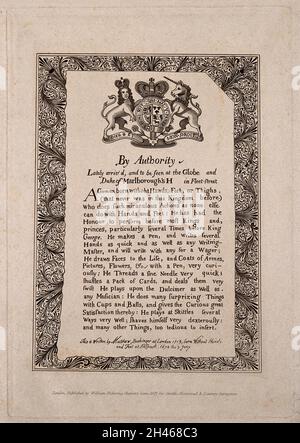 By Authority
Lately arriv'd, and to be seen at the Globe and
Duke of Marlborough's H in Fleet-street
A German born without Hands, Feet, or Thighs,
(that never was in this Kingdom before)
Who does such miraculous Actions as none else
can do with Hands and Feet: He has had the
Honour to perform before most Kings and
princes, particularly several Times before King
George. He makes a Pen, and writes several
Hands as quick and as well as any Writing-
Master, and will write with any for a Wager;
He draws Faces to the Life, and Coats of Armes,
Pictures, Flowers, &c. with a Pen, very curi-
ously: He Threads a fine Needle Very quick;
shuffles a Pack of Cards, and deals them very
swift. He plays upon the Dulcimer as well as
any Musician: He does many Surprizing Things
with Cups and Balls, and gives the Curious great
Satisfaction thereby: He plays at Skittles several
Ways very well; shaves himself very dexterously;
and many other Things, too tedious to insert.
This is Written by Matthew Buchinger at London born Without Hands
and Feet at
London, Published by William Pickering, Chancery Lane,
alamy
Image ID: 2H468C3
www.alamy.com